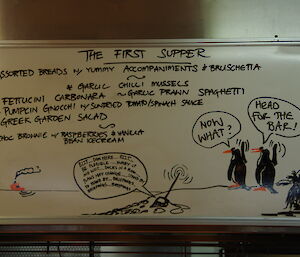 THE FIRST SUPPER
ASSORTED BREADS w/ YUMMY ACCOMPANIMENTS & BRUSCHETTA
& GARLIC CHILLI MUSSELS
FETTUCINI CARBONARA ~ GARLIC PRAWN SPAGHETTI
PUMPKIN GNOCCHI w/ SUNDRIED TOMATO/SPINACH SAUCE
GREEK GARDEN SALAD
CHOC BROWNIE w/ RASPBERRIES & VANILLA
BEAN ICECREAM
NOW
WHAT?
HEAD
FOR THE
BAR!